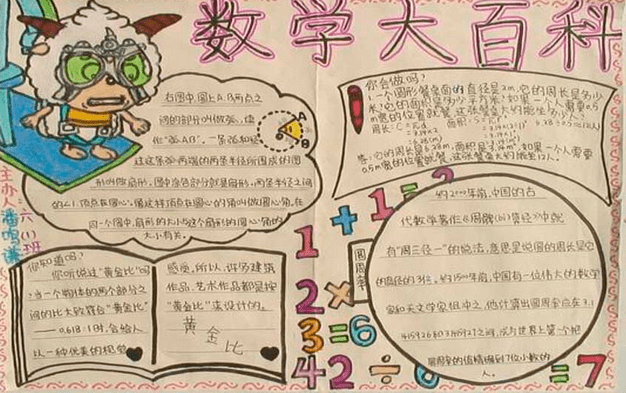 数学大百科
右图中,圆上A、B两点之
间的部分叫做弧,读
作“弧AB”,一条弧和经
过这条弧两端的两条半径所围成的图
形叫做扇形。图中涂色部分就是扇形。两条半径之间
的∠1,顶点在圆心。像这样顶点在圆心的角叫做圆心角。在
同一个圆中,扇形的大小与这个扇形的圆心角的
大小有关。
A
B
主办人:
六(1)班
你会做吗?
1.一个圆形餐桌面的直径是2m,它的周长是多少
米?它的面积是多少平方米?如果一个人需要0.5
m宽的位置就餐,这张餐桌大约能坐多少人?
周长:C=πd
=3.14×2
答:它的周长是6.28m,面积是3.14m²,如果一个人需要
0.5m宽的位置就餐,这张餐桌大约能坐12人。
你知道吗?
你听说过“黄金比”吗
?当一个物体的两个部分之
间的比大致符合“黄金比”
——0.618:1时,会给人
以一种优美的视觉
感受。所以,许多建筑
作品、艺术作品都是按
“黄金比”来设计的。
黄金比
1+1=2
2×
3=6
42÷6=7
圆周率
约2000年前,中国的古
代数学著作《周髀算经》中就
有“周三径一”的说法,意思是说圆的周长是它
的直径的3倍。约1500年前,中国有一位伟大的数学
家和天文学家祖冲之,他计算出圆周率应在3.1
415926和3.1415927之间,成为世界上第一个把
圆周率的值精确到7位小数的
人。